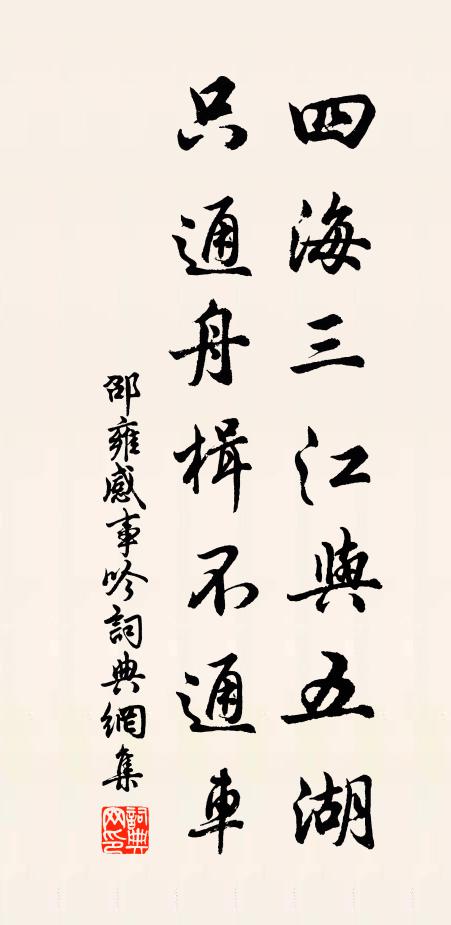 四海三江與五湖
只通舟楫不通車
邵雍感事吟詞典網集
詞典網印